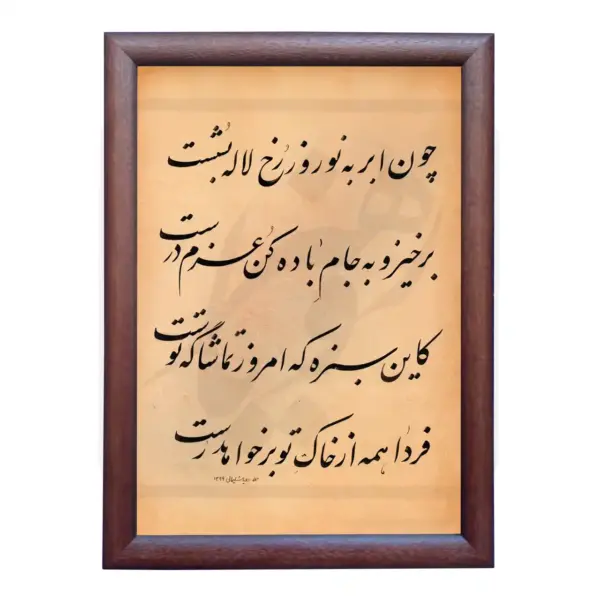 چون ابر به نوروز رُخ لاله بشُست
برخیز و به جام باده کُن عزم درست
کاین سبزه که امروز تماشاگه توست
فردا همه از خاک تو برخواهد رست
۱۳۹۹